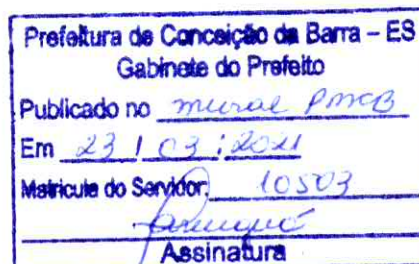 Prefeitura de Conceição da Barra – ES
Gabinete do Prefeito
Publicado no mural PMCB
Em 23 / 03 / 2021
Matricula do Servidor: 10503
Assinatura